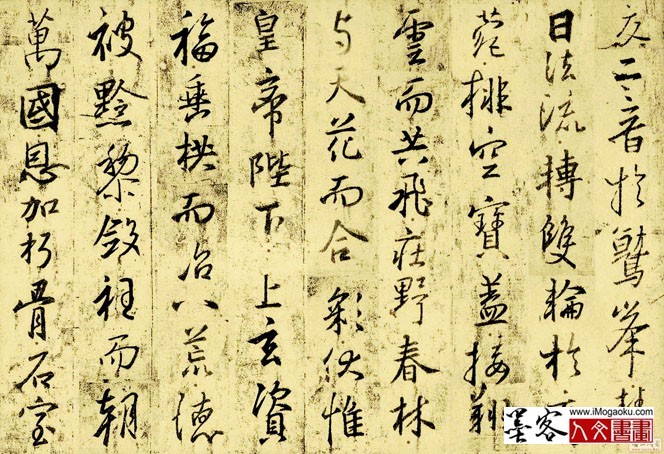 交二音於鷲峯
日法流轉雙輪於
菀排空寶蓋接翔
雲而共飛莊野春林
与天花而合彩伏惟
皇帝陛下上玄資
福垂拱而治八荒德
被黔黎斂衽而朝
萬國恩加朽骨石室
墨客
www.iMogaoku.com
人文書畫